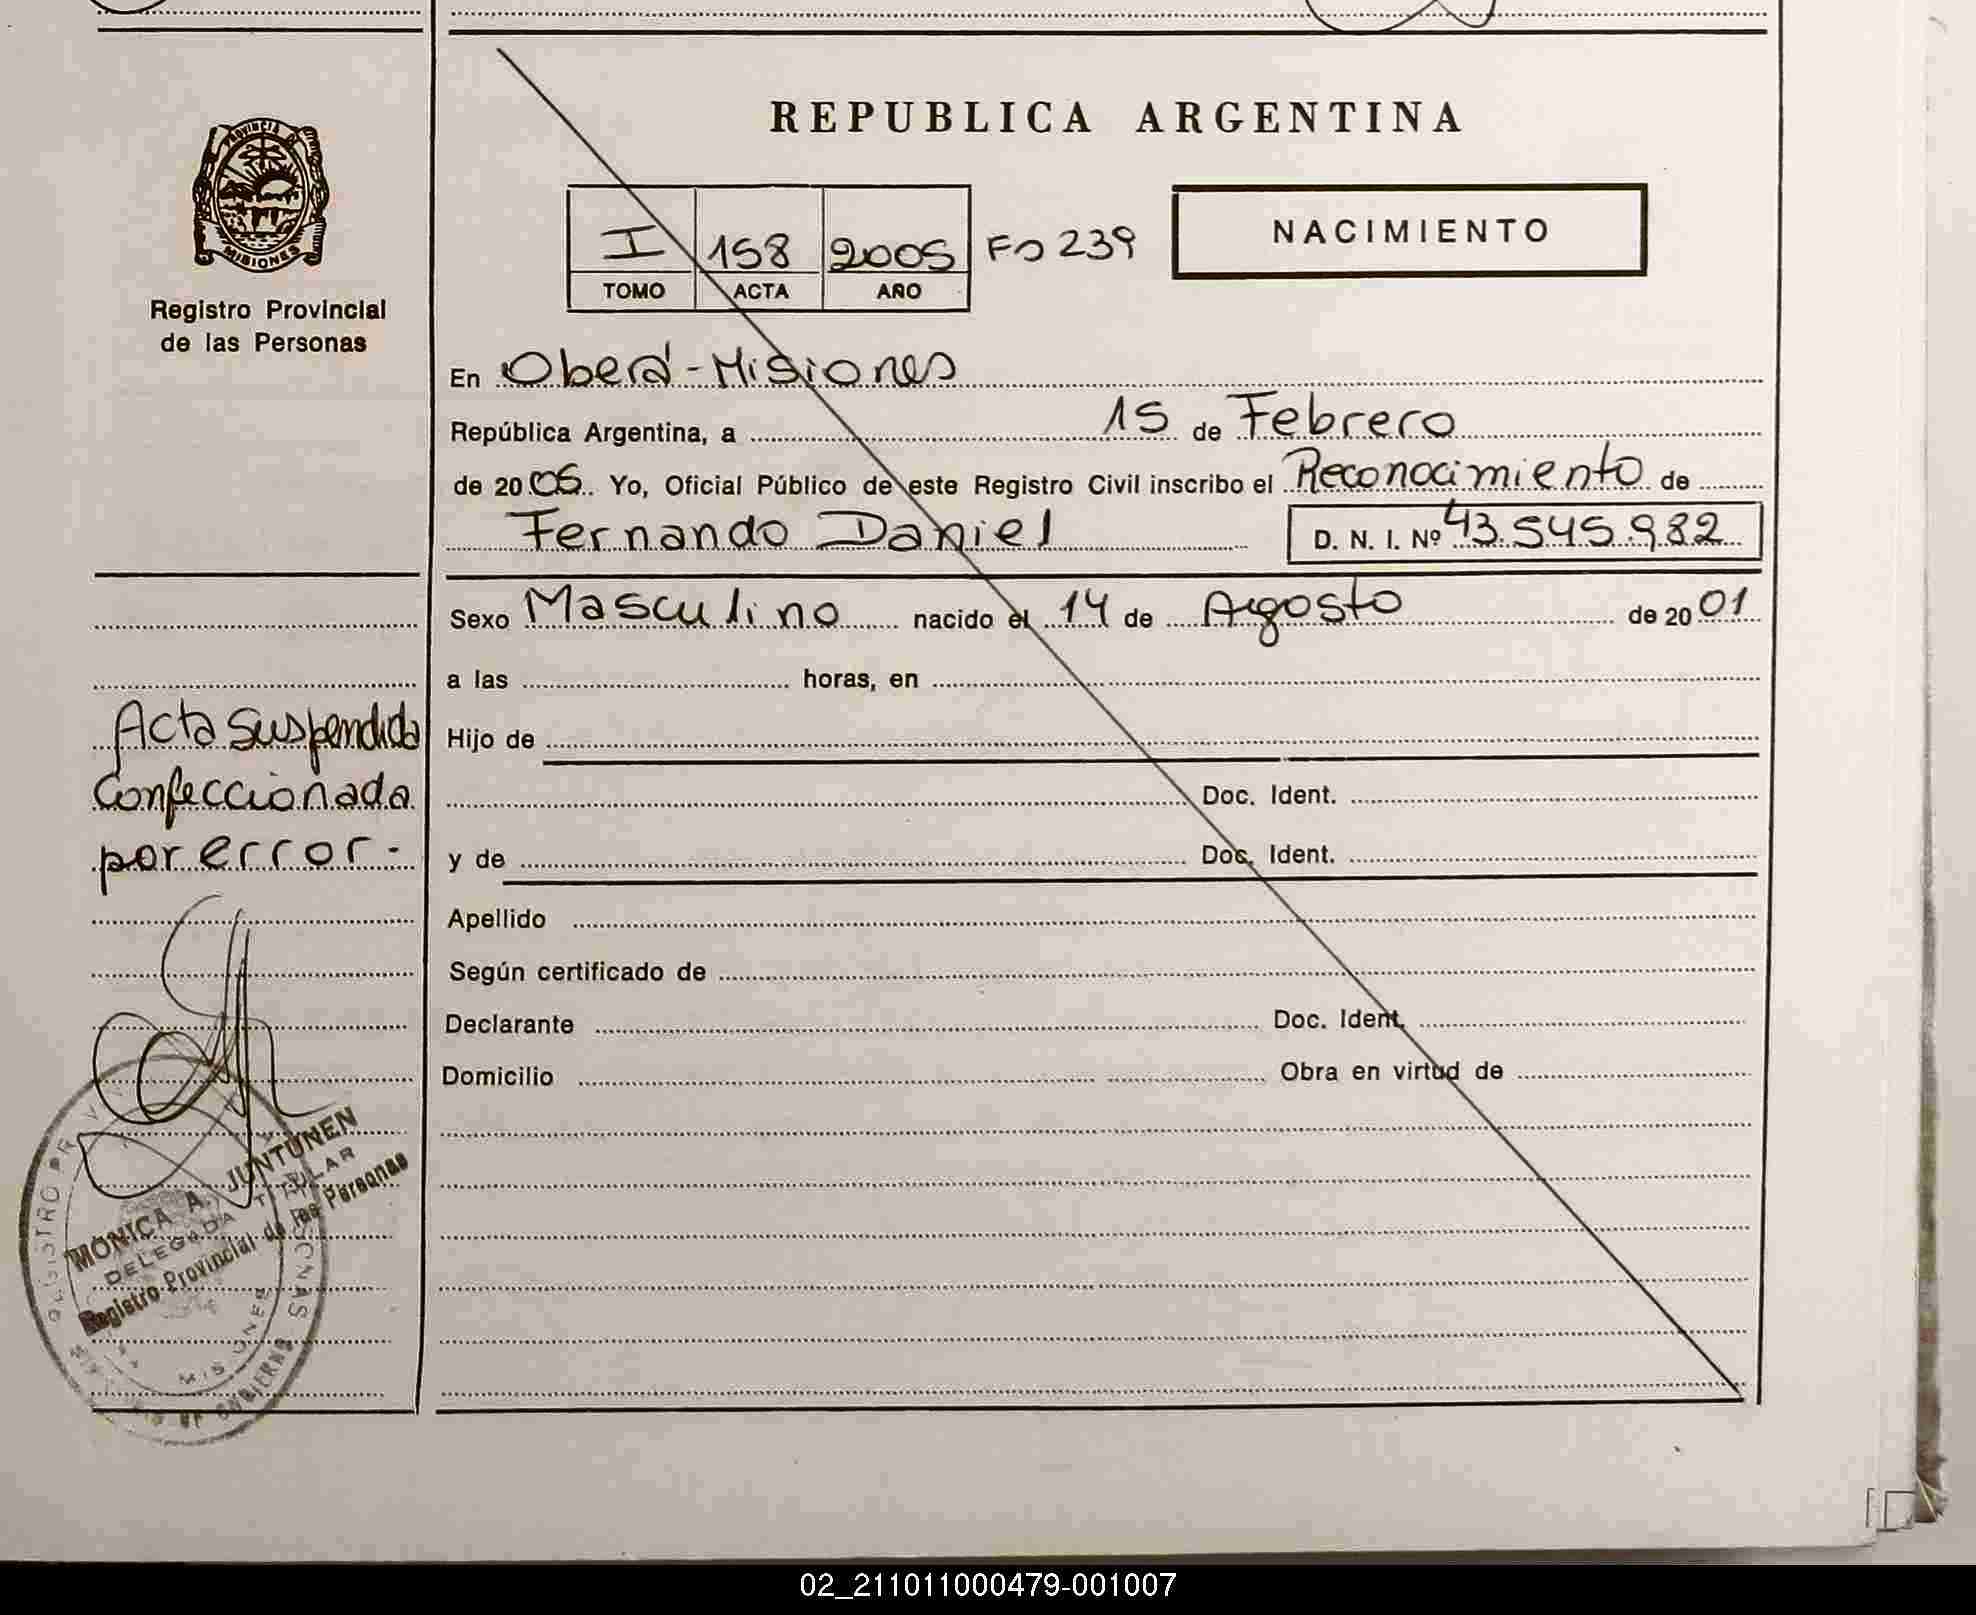 REPUBLICA ARGENTINA
PROVINCIA DE
MISIONES
Registro Provincial
de las Personas
I 158 2005 Fo 239
TOMO ACTA AÑO
NACIMIENTO
En Oberá - Misiones
República Argentina, a 15 de Febrero
de 2005. Yo, Oficial Público de este Registro Civil inscribo el Reconocimiento de
Fernando Daniel D. N. I. Nº 43.545.982
Sexo Masculino nacido el 14 de Agosto de 2001
a las horas, en
Hijo de
Doc. Ident.
y de Doc. Ident.
Apellido
Según certificado de
Declarante Doc. Ident.
Domicilio Obra en virtud de
Acta suspendida
Confeccionada
por error -
MONICA A. JUNTUNEN
DELEGADA TITULAR
Registro Provincial de las Personas
MISIONES
02_211011000479-001007